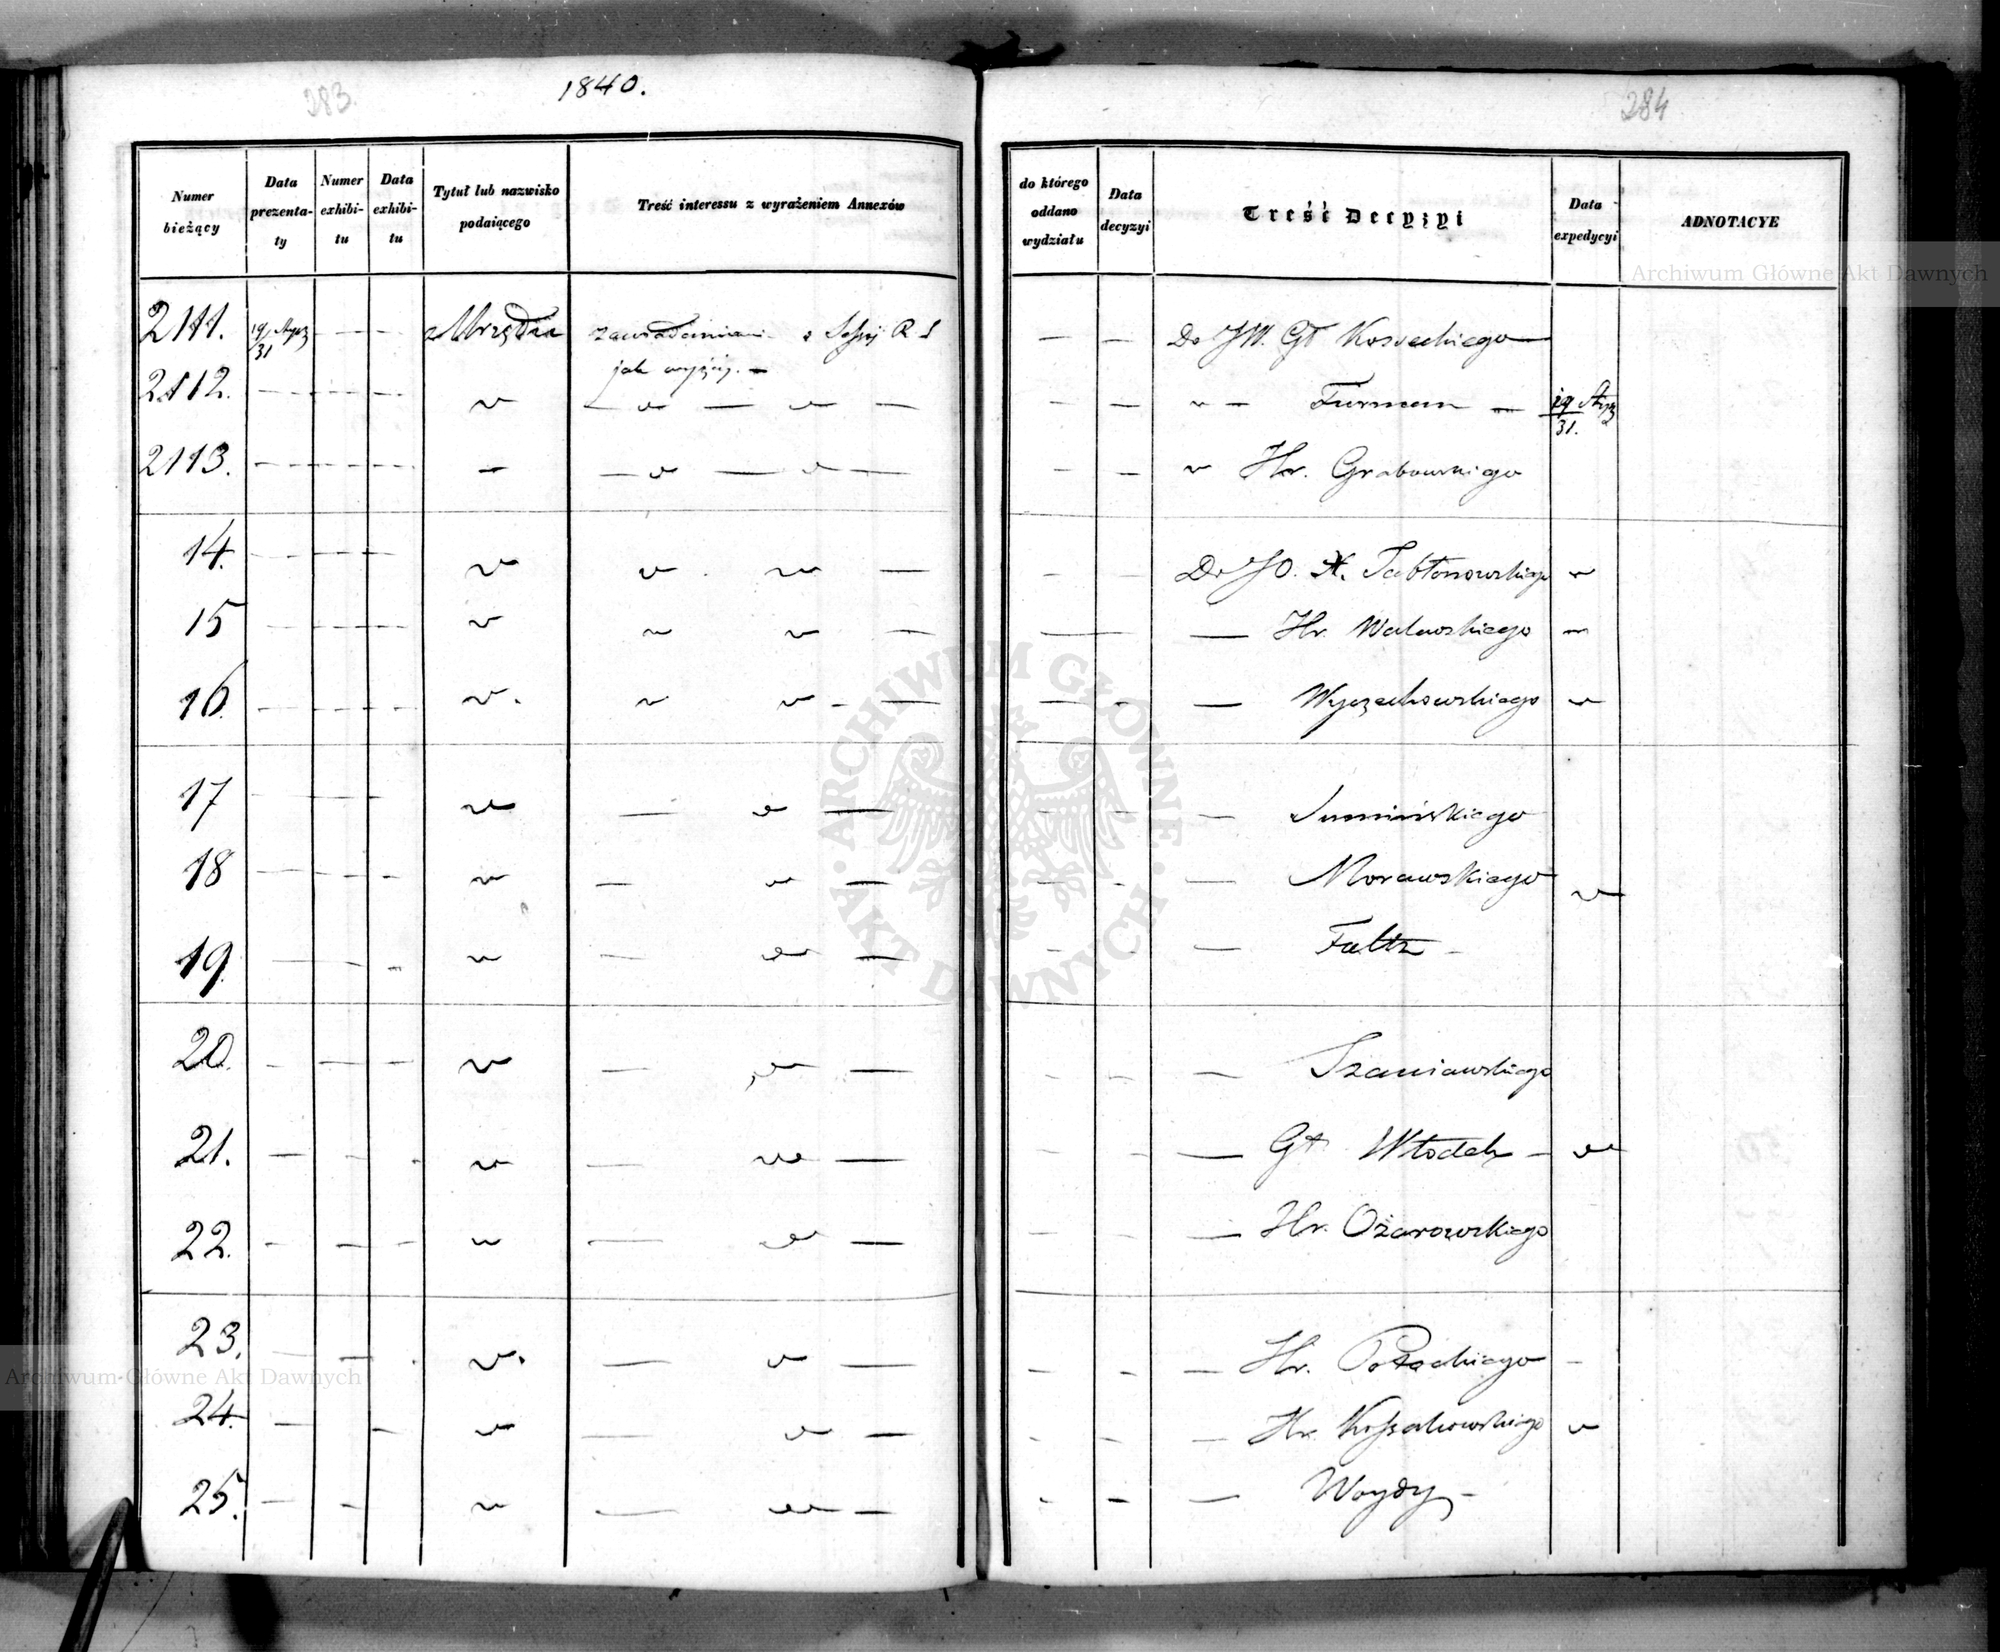 283.
1840.
284
Numer bieżący
Data prezenta-ty
Numer exhibi-tu
Data exhibi-tu
Tytuł lub nazwisko podaiącego
Treść interessu z wyrażeniem Annexów
do którego oddano wydziału
Data decyzyi
Treść Decyzyi
Data expedycyi
ADNOTACYE
2111. 19/31 z Urzędu zawiadomieni o R S — — Do JW. Gł Kosseckiego
jak wyżéj. —
2112. — — — Furman — 19/31.
2113. — — — Hr. Grabowskiego
14. — — Do JO. X. Jabłonowskiego
15 — — Hr. Walewskiego
16. — — Wyczechowskiego
17 — — Sumińskiego
18 — — Morawskiego
19. — — Faltz —
20. — — Szaniawskiego
21. — — Gł Włodek —
22. — — Hr. Ożarowskiego
23. — — Hr. Potockiego —
24. — — Hr. Kossakowskiego
25. — — Woydy —
Archiwum Główne Akt Dawnych
ARCHIWUM GŁÓWNE · AKT DAWNYCH ·
Archiwum Główne Akt Dawnych